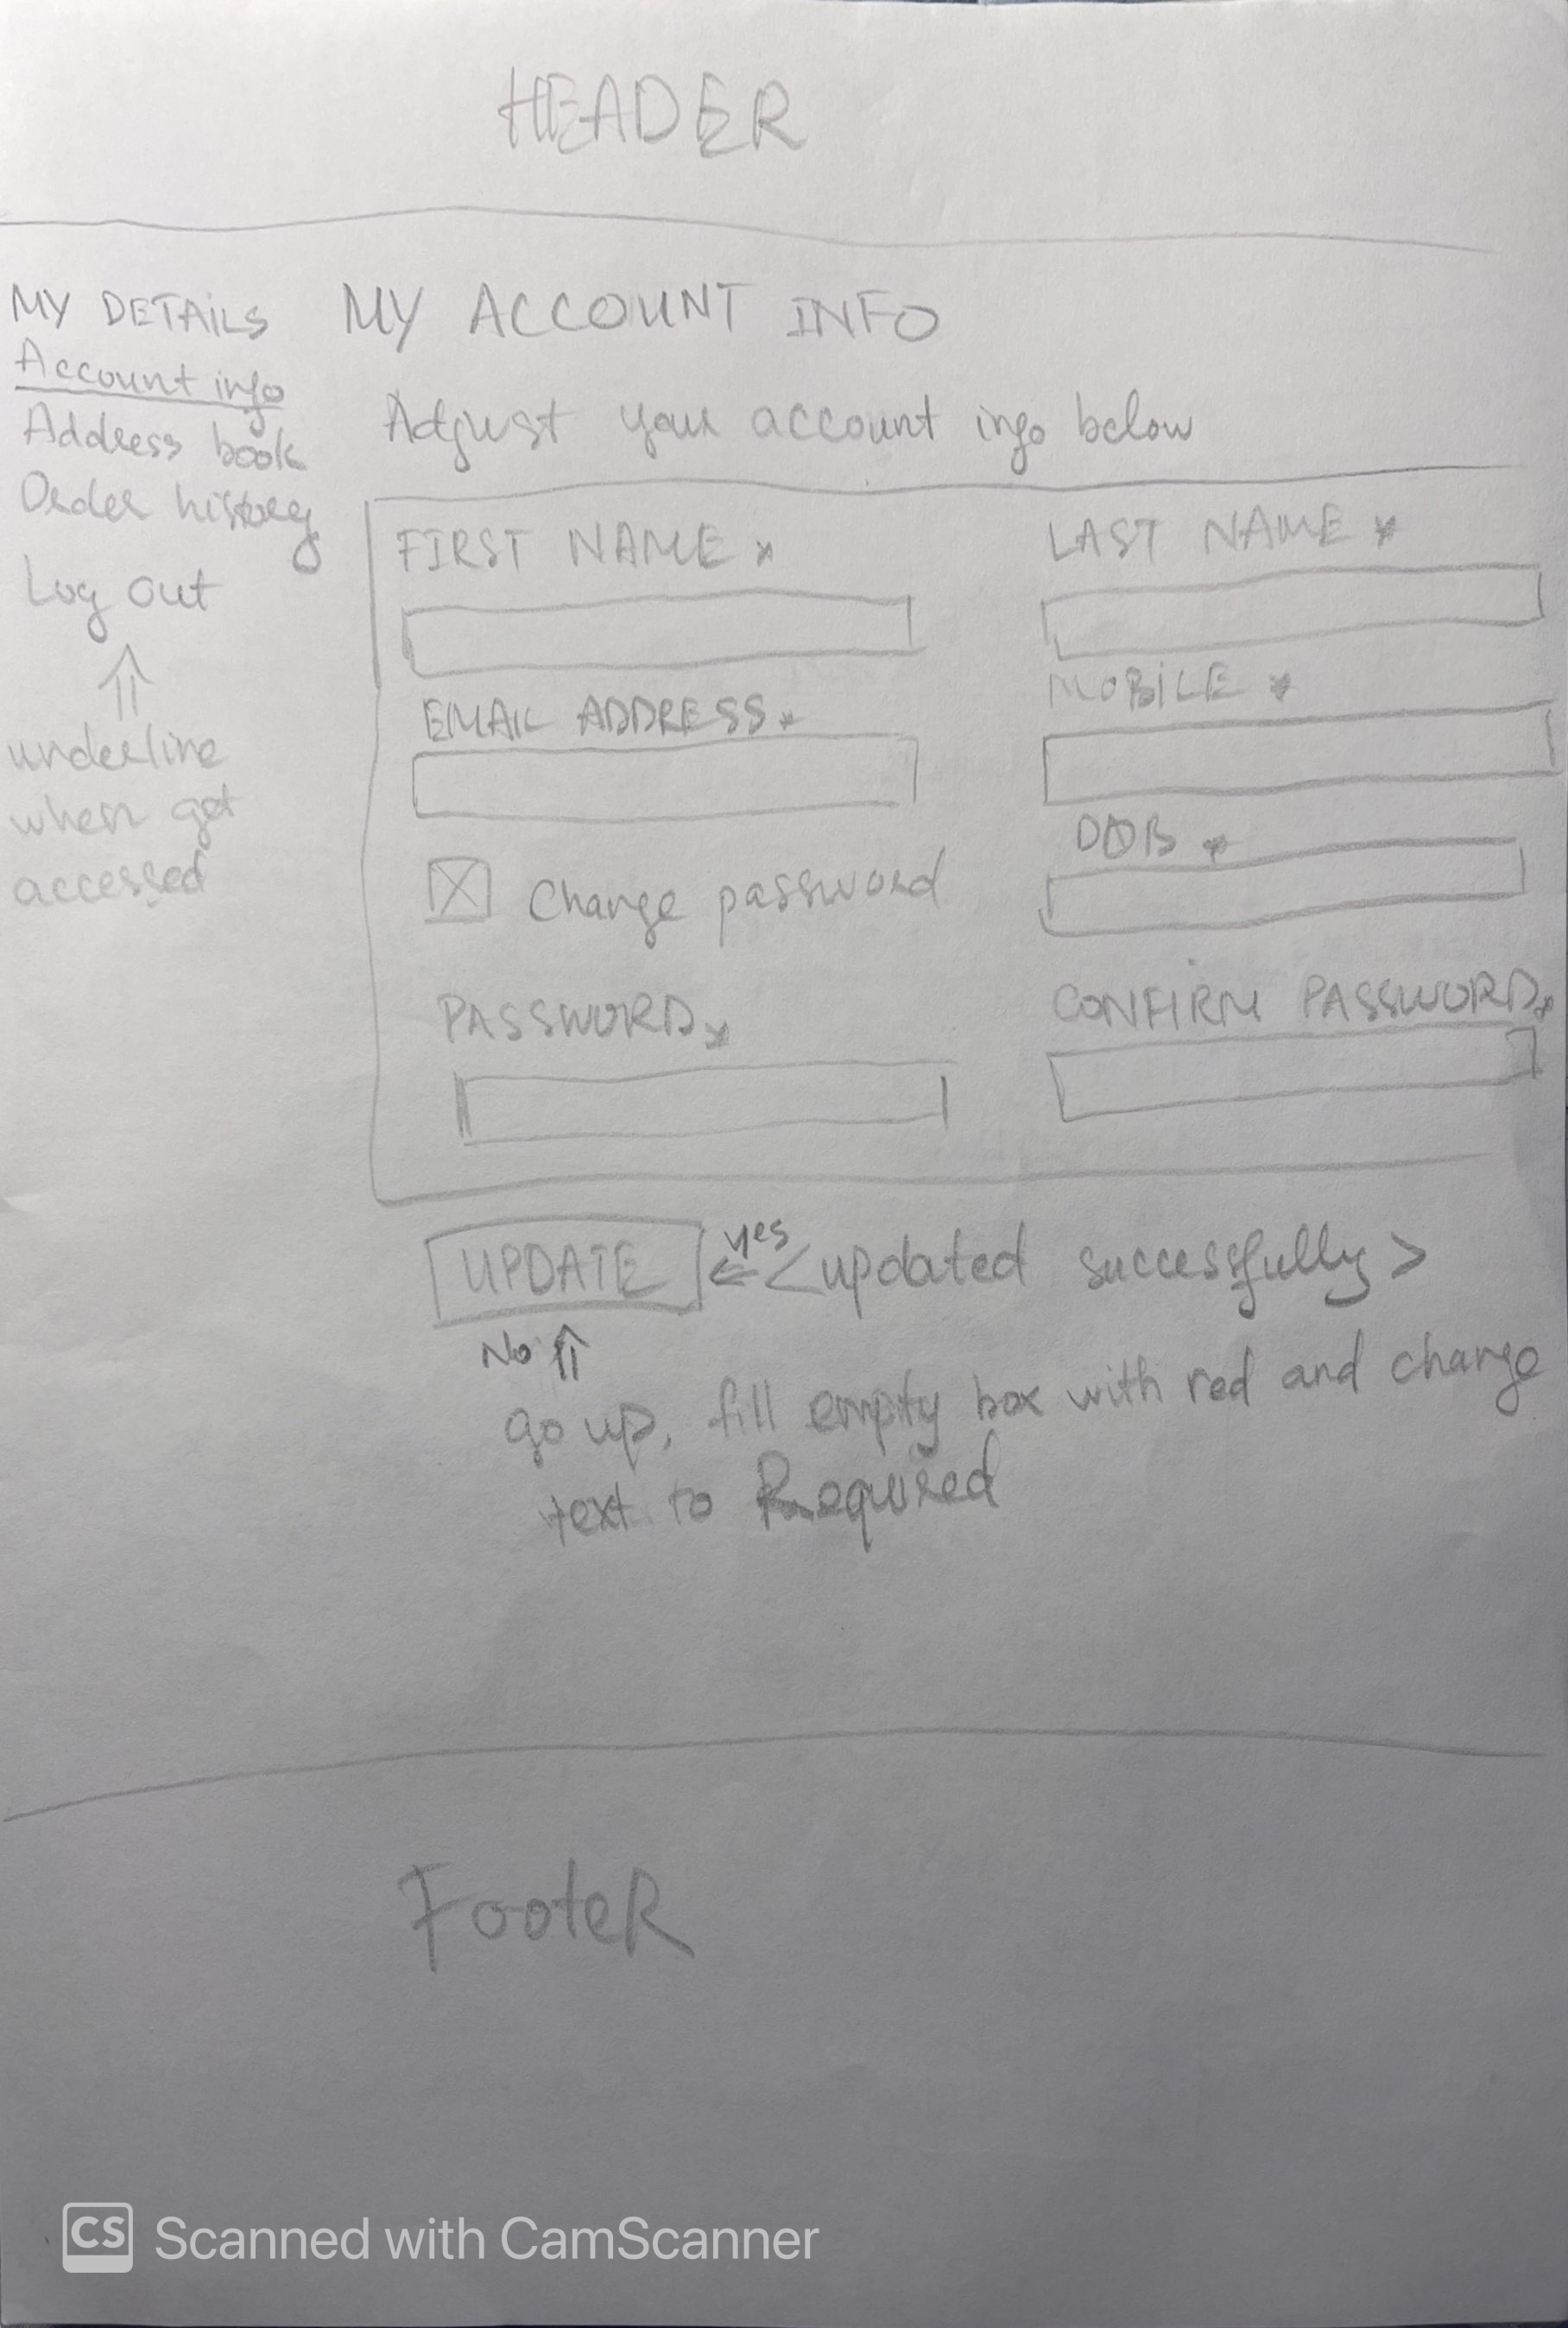 HEADER
MY DETAILS
Account info
Address book
Order history
Log out
underline
when get
accessed
MY ACCOUNT INFO
Adjust your account info below
FIRST NAME *
LAST NAME *
EMAIL ADDRESS *
MOBILE *
Change password
DOB *
PASSWORD *
CONFIRM PASSWORD *
UPDATE
yes
<updated successfully>
No
go up, fill empty box with red and change
text to Required
Footer
CS Scanned with CamScanner